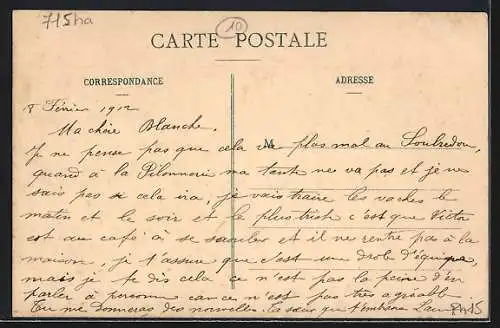 715ha
10
CARTE POSTALE
CORRESPONDANCE
ADRESSE
8 Février 1912
Ma chère Blanche,
M
Je ne pense pas que cela va plus mal au Soulredou,
quand à la Pilonnerie ma tante ne va pas et je ne
sais pas si cela ira, je vais traire les vaches le
matin et le soir et le plus triste c'est que Victor
est au café à se saouler et il ne rentre pas à la
maison, je t'assure que c'est une drole d'équipe,
mais je te dis cela ce n'est pas la peine d'en
parler à personne car ce n'est pas très agréable
Tu me donneras des nouvelles. ta soeur qui t'embrasse